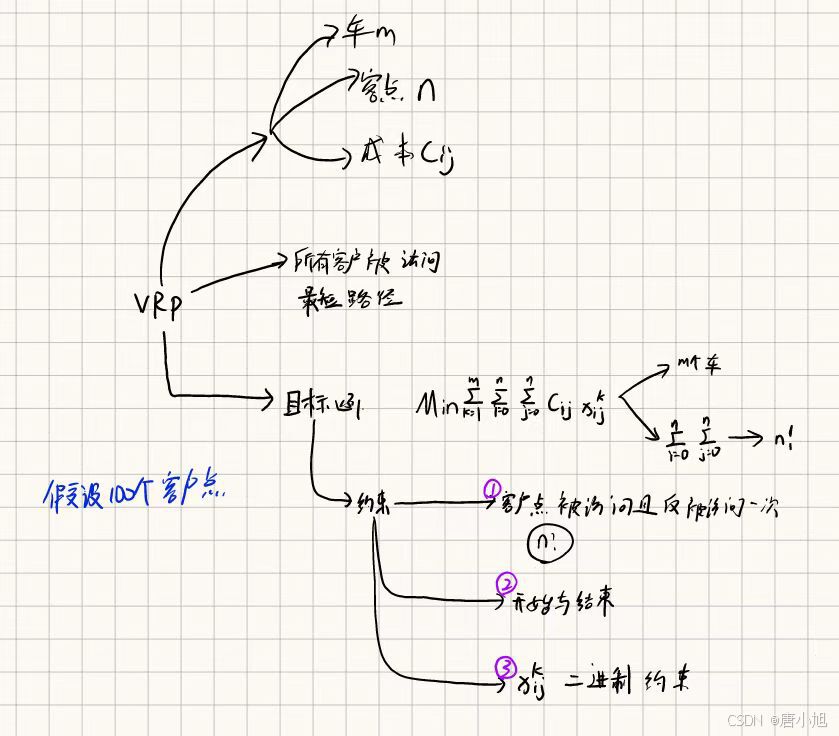 车m
客点 n
成本Cij
所有客户被访问
最短路径
VRP
m个车
目标函 Min ∑_{k=1}^{m} ∑_{i=0}^{n} ∑_{j=0}^{n} Cij x_{ij}^{k}
∑_{i=0}^{n} ∑_{j=0}^{n} → n!
假设100个客户点
约束
① 客户点被访问且仅被访问一次
n!
② 开始与结束
③ x_{ij}^{k} 二进制约束
CSDN @唐小旭